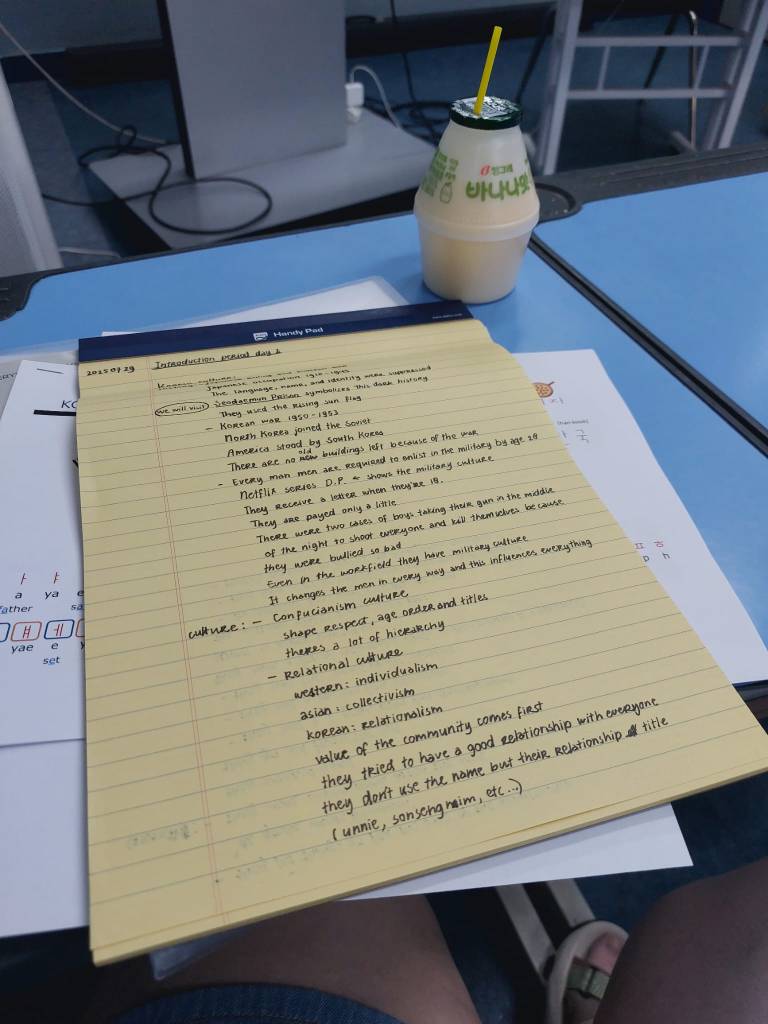 빙그레
바나나맛
Handy Pad
2025 07 29
Introduction period day 1
Korean culture:
Japanese occupation 1910-1945
The language, name, and identity were suppressed
(we will visit) Seodaemun Prison symbolizes this dark history
They used the rising sun flag
- Korean war 1950-1953
North Korea joined the Soviet
America stood by South Korea
There are no old buildings left because of the war
- Every man men are required to enlist in the military by age 28
Netflix series D.P. ← shows the military culture
They receive a letter when they're 18.
They are payed only a little
There were two cases of boys taking their gun in the middle
of the night to shoot everyone and kill themselves because
they were bullied so bad
Even in the workfield they have military culture
It changes the men in every way and this influences everything
culture: - Confucianism culture
shape respect, age order and titles
theres a lot of hierarchy
- Relational culture
western: individualism
asian: collectivism
korean: relationalism
value of the community comes first
they tried to have a good relationship with everyone
they don't use the name but their relationship title
(unnie, sonsengnim, etc...)
ㅏ ㅑ
a ya
father
ㅒ ㅔ
yae e
set
자
국
ㅍ ㅎ
p h